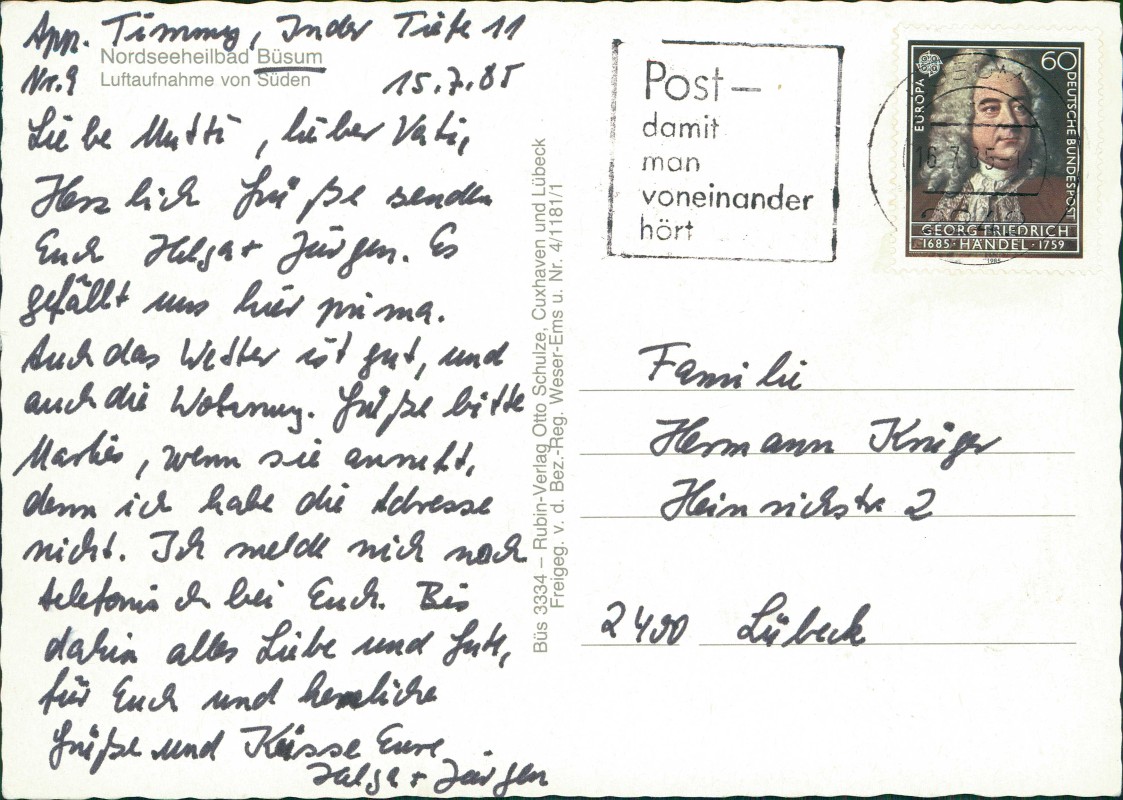 App. Timmy, In der Tiefe 11
Nordseeheilbad Büsum
Nr. 9
Luftaufnahme von Süden
15.7.85
Liebe Mutti, lieber Vati,
Herzlich Grüße senden
Euch Helga + Jürgen. Es
gefällt uns hier prima.
Auch das Wetter ist gut, und
auch die Wohnung. Grüße bitte
wenn sie anruft,
denn ich habe die Adresse
nicht. Ich melde mich noch
telefonisch bei Euch. Bis
dahin alles Liebe und Gute,
für Euch und herzliche
Grüße und Küsse Eure
Helga + Jürgen
Büs 3334 – Rubin-Verlag Otto Schulze, Cuxhaven und Lübeck
Freigeg. v. d. Bez.-Reg. Weser-Ems u. Nr. 4/1181/1
Post –
damit
man
voneinander
hört
60
EUROPA
DEUTSCHE BUNDESPOST
GEORG FRIEDRICH
1685 · HÄNDEL · 1759
1985
Familie
Hermann Krüger
Heinrichstr 2
2400 Lübeck